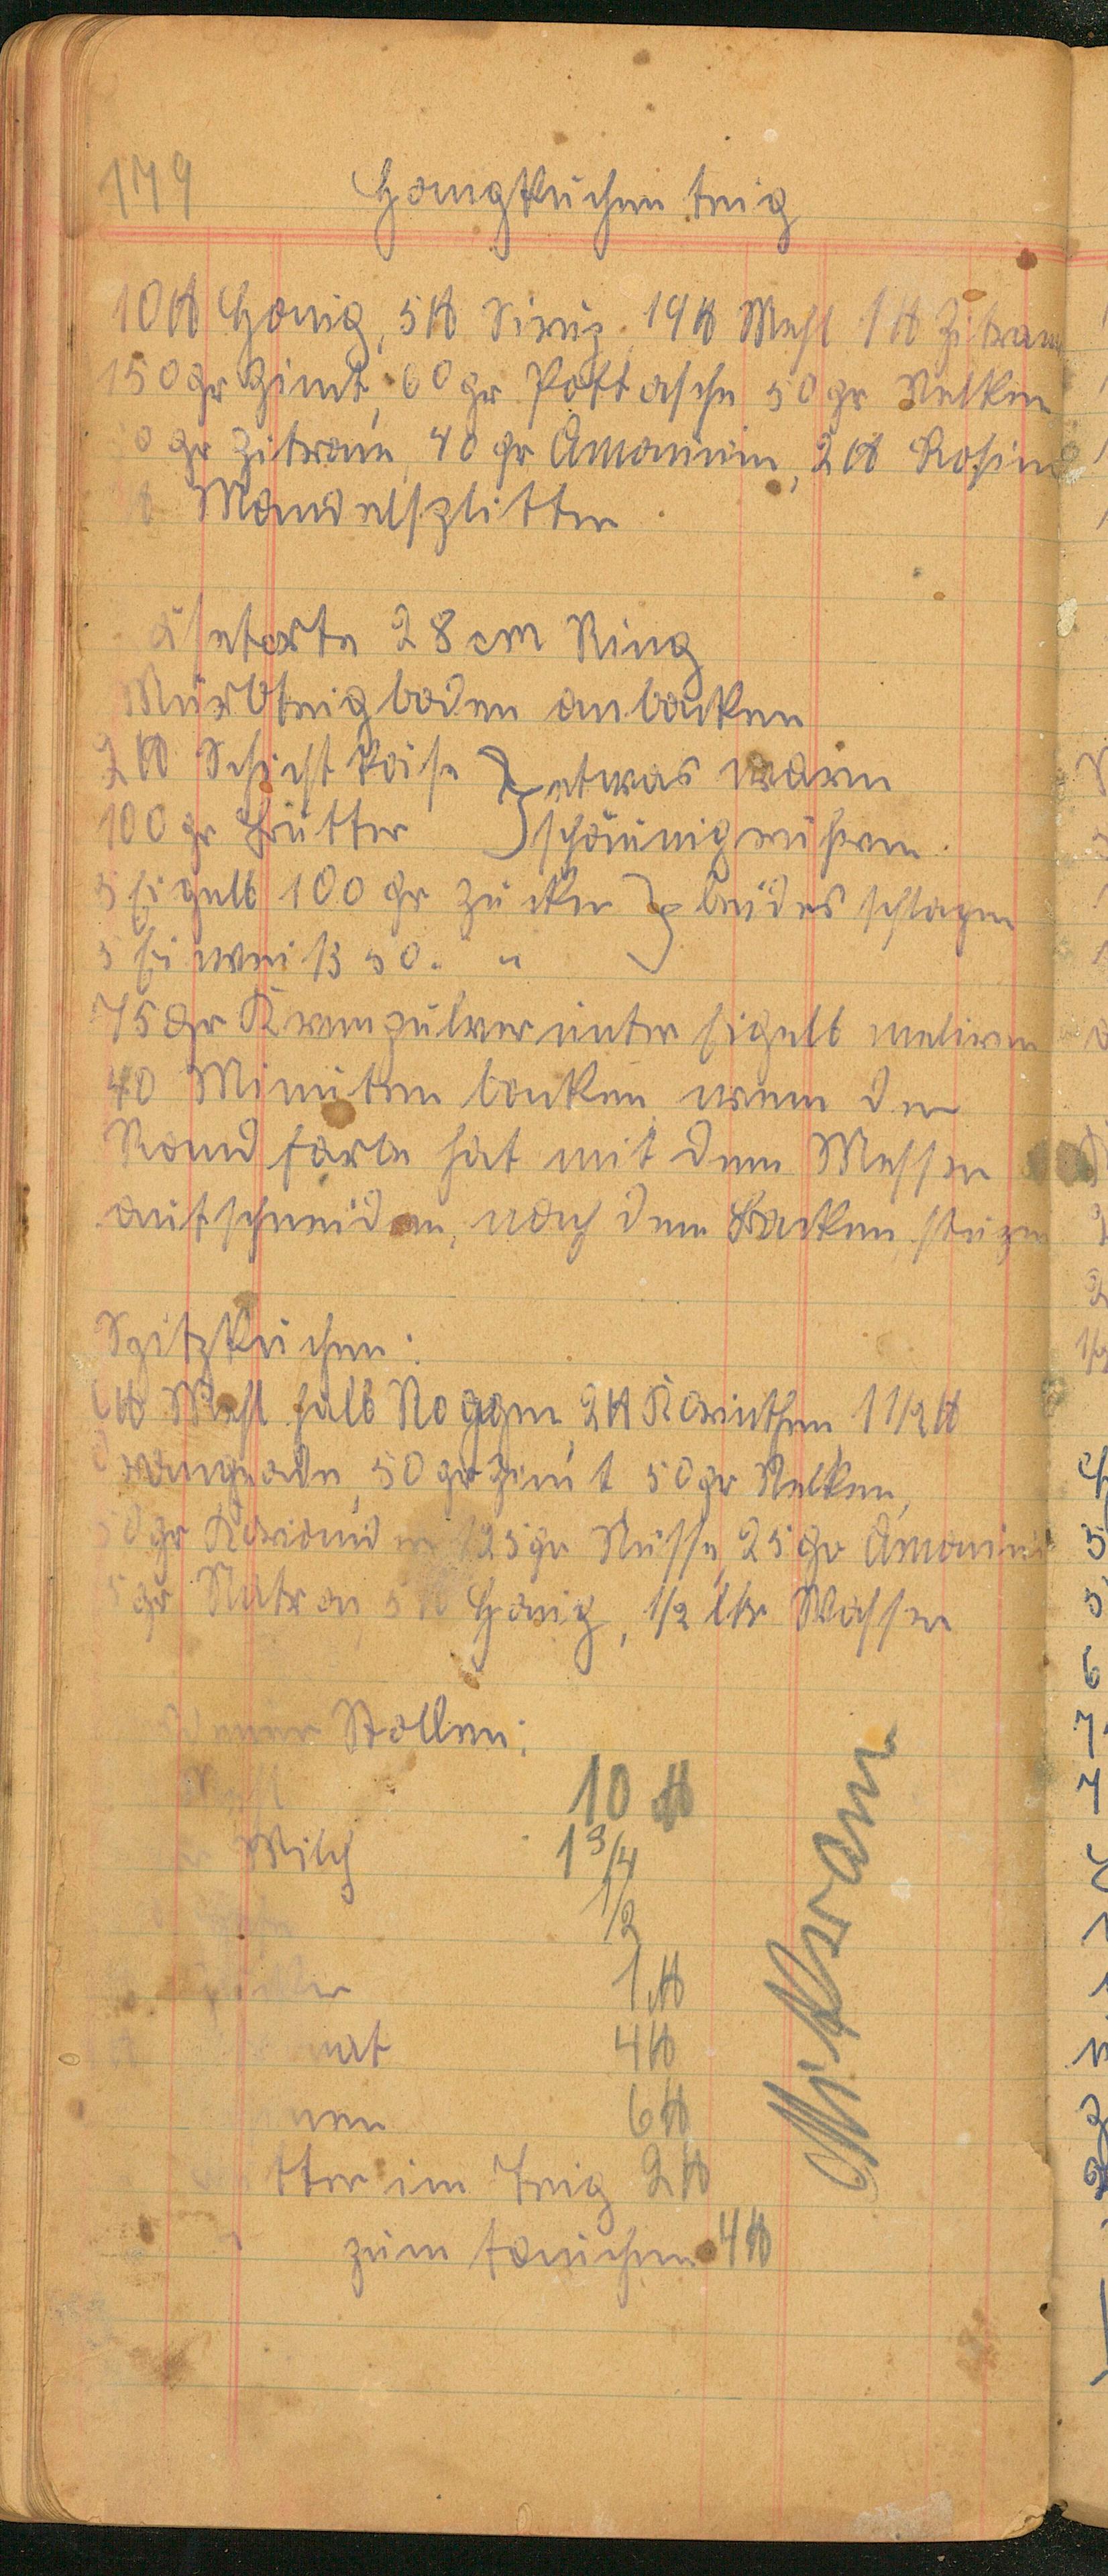 179
Honigkuchen teig
10 ℔ Honig, 5 ℔ Sirup, 19 ℔ Mehl 1 ℔ Zitronat
150 gr Zimt, 60 gr Pottasche 50 gr Nelken
0 gr Zitrone, 40 gr Amonium, 2 ℔ Rosinen
℔ Mandelsplitter
äsetorte 28 cm Ring
Mürbteigboden anbacken
2 ℔ Schicht käse } etwas warm
100 gr Butter } schäumig rühren.
5 Eigelb 100 gr Zucker } beides schlagen
5 Eiweiß 50. "
75 gr Krempulver unter Eigelb meliren
40 Minuten backen, wenn der
Rand farbe hat mit dem Messer
aufschneiden, nach dem Backen stürzen
Spitzkuchen:
℔ Mehl halb Roggen, 2 ℔ Korinthen, 1 1/2 ℔
orangeade, 50 gr Zimt 50 gr Nelken,
50 gr Koriander 125 gr Nüsse, 25 gr Amonium
5 gr Natron 5 ℔ Honig, 1/2 ltr Wasser
Stollen:
Mehl 10 ℔
Milch 1 3/4
1/2
Zucker 1 ℔
nat 4 ℔
nen 6 ℔
tter im Teig 2 ℔
zum tauchen 4 ℔